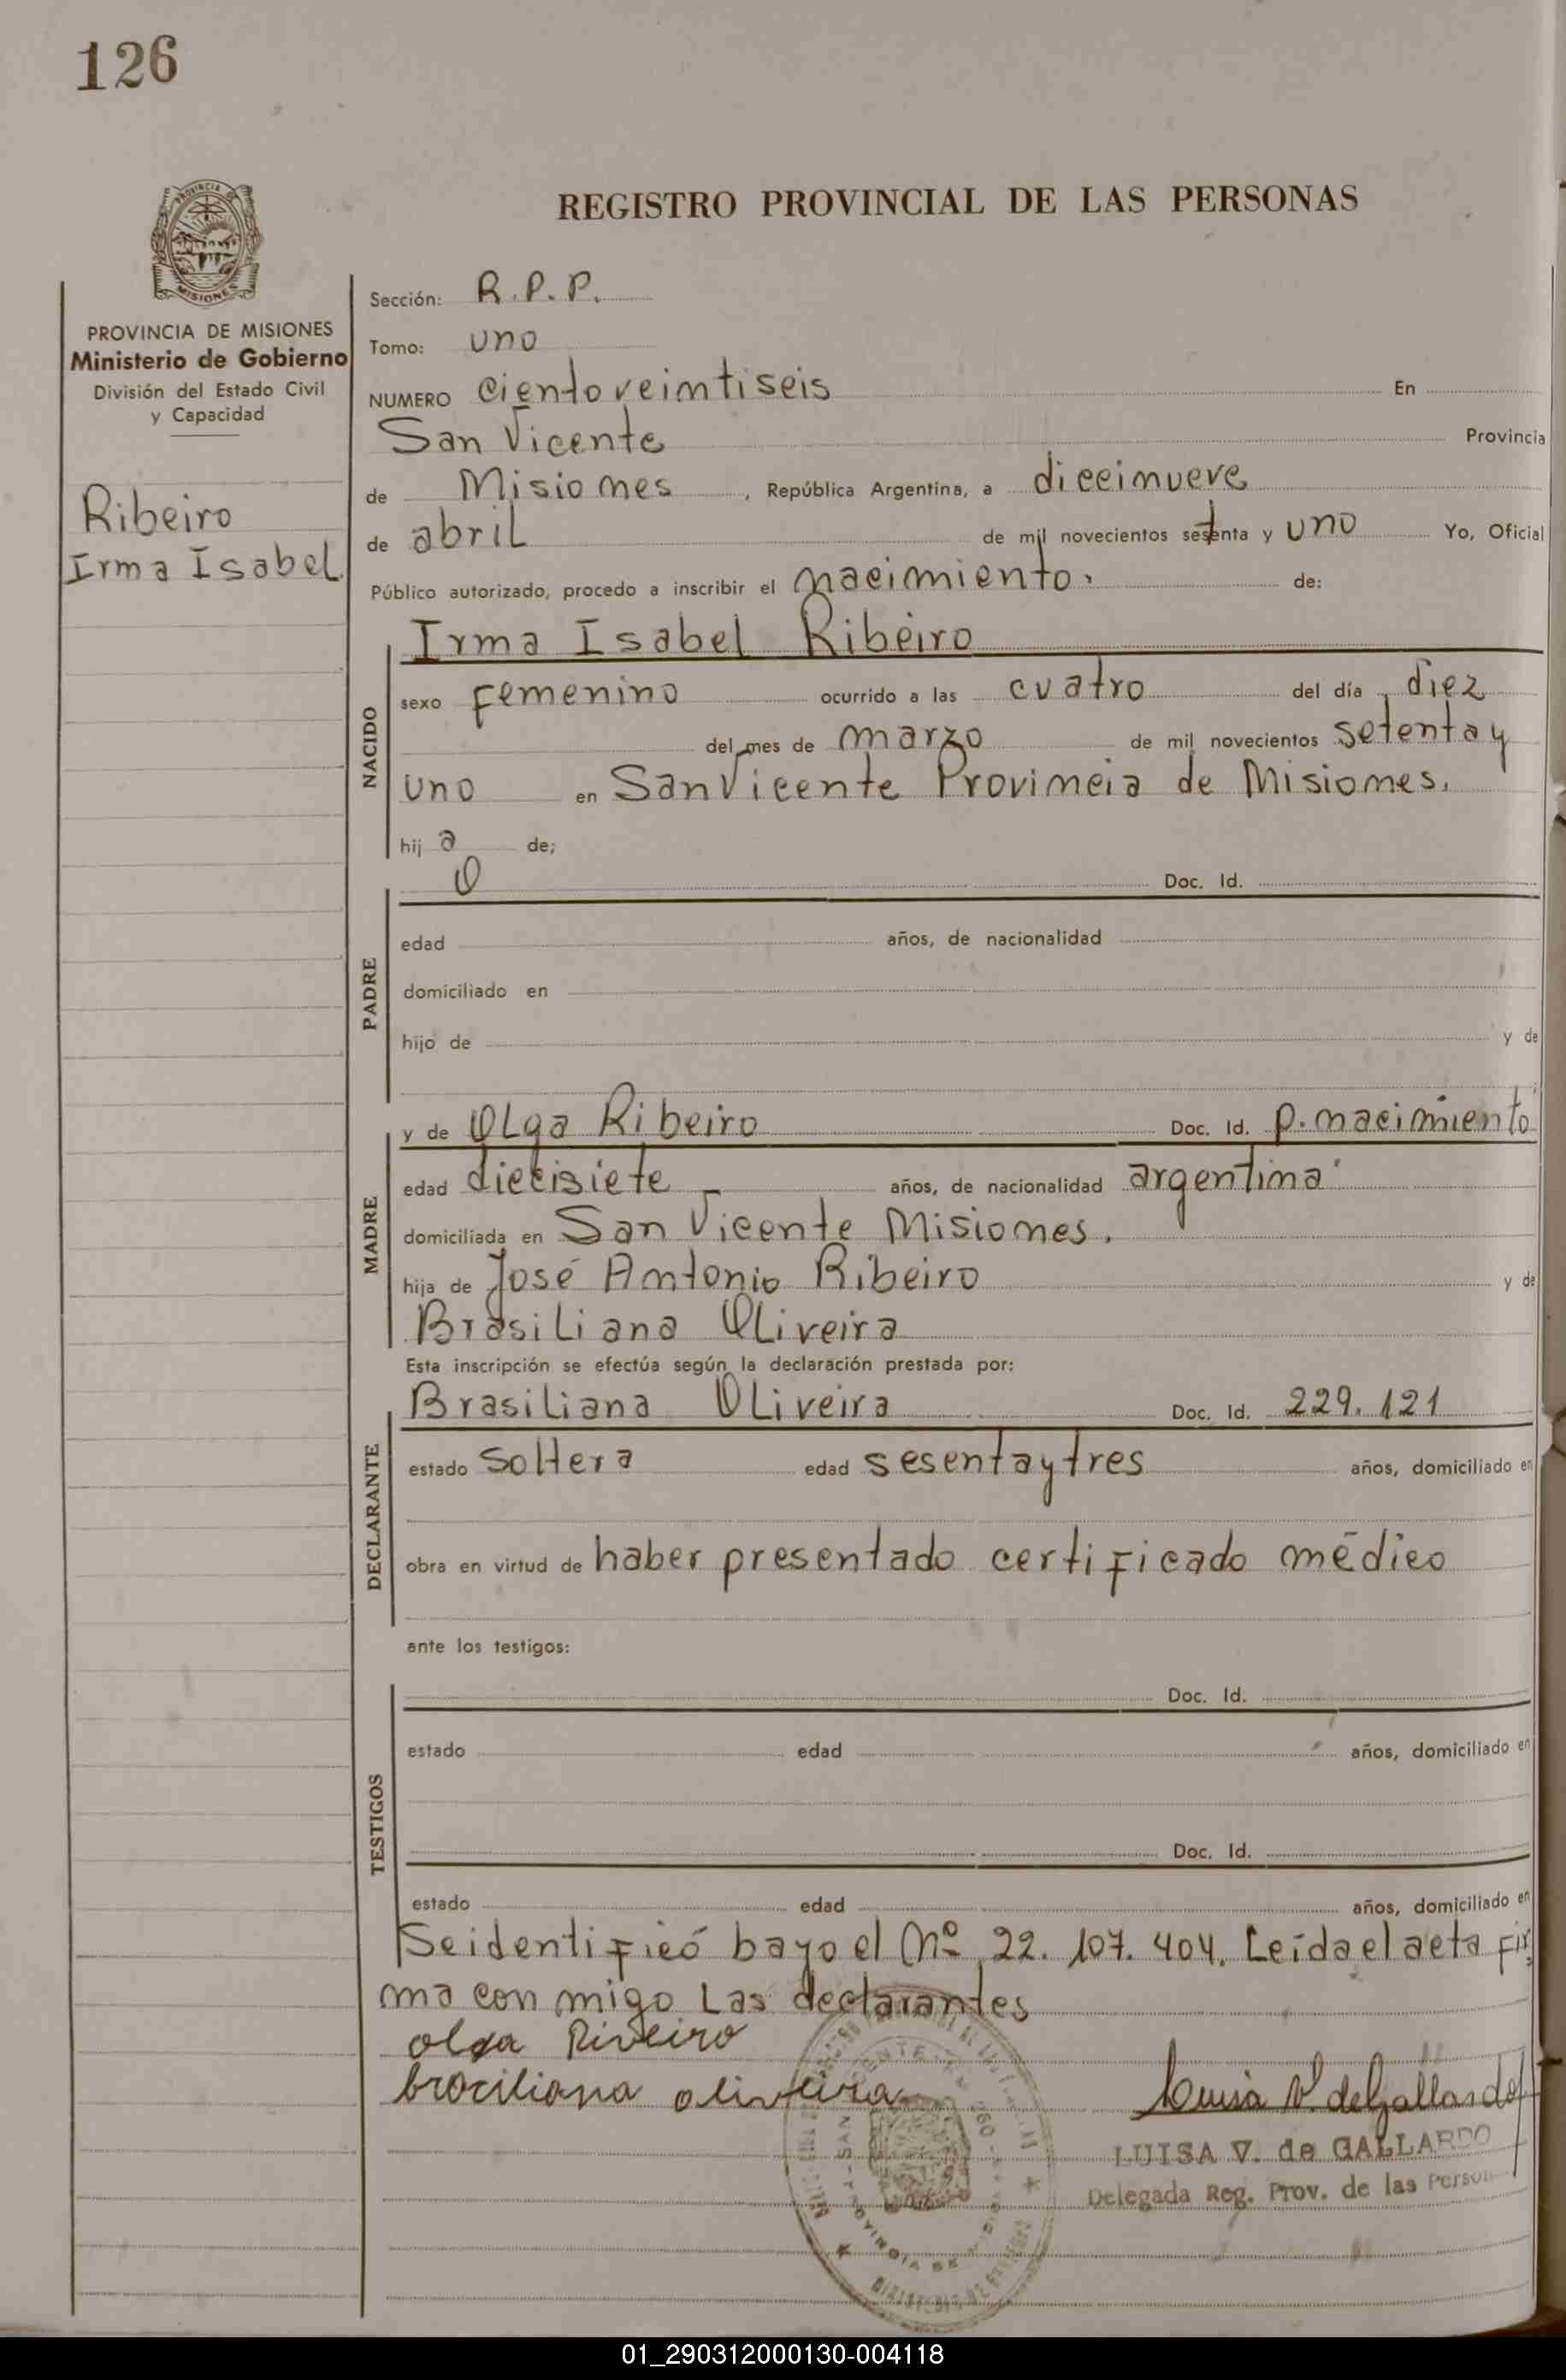 126
REGISTRO PROVINCIAL DE LAS PERSONAS
PROVINCIA DE MISIONES
Ministerio de Gobierno
División del Estado Civil
y Capacidad
Ribeiro
Irma Isabel
Sección: R.P.P.
Tomo: uno
NUMERO ciento veintiseis En
San Vicente Provincia
de Misiones, República Argentina, a dieeinueve
de abril de mil novecientos setenta y uno Yo, Oficial
Público autorizado, procedo a inscribir el nacimiento. de:
NACIDO
Irma Isabel Ribeiro
sexo femenino ocurrido a las cuatro del día diez
del mes de marzo de mil novecientos setenta y
uno en San Vicente Provincia de Misiones.
hij a de;
PADRE
Doc. Id.
edad años, de nacionalidad
domiciliado en
hijo de y de
MADRE
y de Olga Ribeiro Doc. Id. p. nacimiento
edad diecisiete años, de nacionalidad argentina
domiciliada en San Vicente Misiones.
hija de José Antonio Ribeiro y de
Brasiliana Oliveira
Esta inscripción se efectúa según la declaración prestada por:
DECLARANTE
Brasiliana Oliveira Doc. Id. 229.121
estado soltera edad sesenta y tres años, domiciliado en
obra en virtud de haber presentado certificado médico
ante los testigos:
TESTIGOS
Doc. Id.
estado edad años, domiciliado en
Doc. Id.
estado edad años, domiciliado en
Se identificó bayo el Nº 22.107.404. Leída el acta fir
ma con migo Las declarantes
olga Riveiro
brociliana oliveira
Luisa V. de Gallardo
LUISA V. de GALLARDO
Delegada Reg. Prov. de las Person
01_290312000130-004118